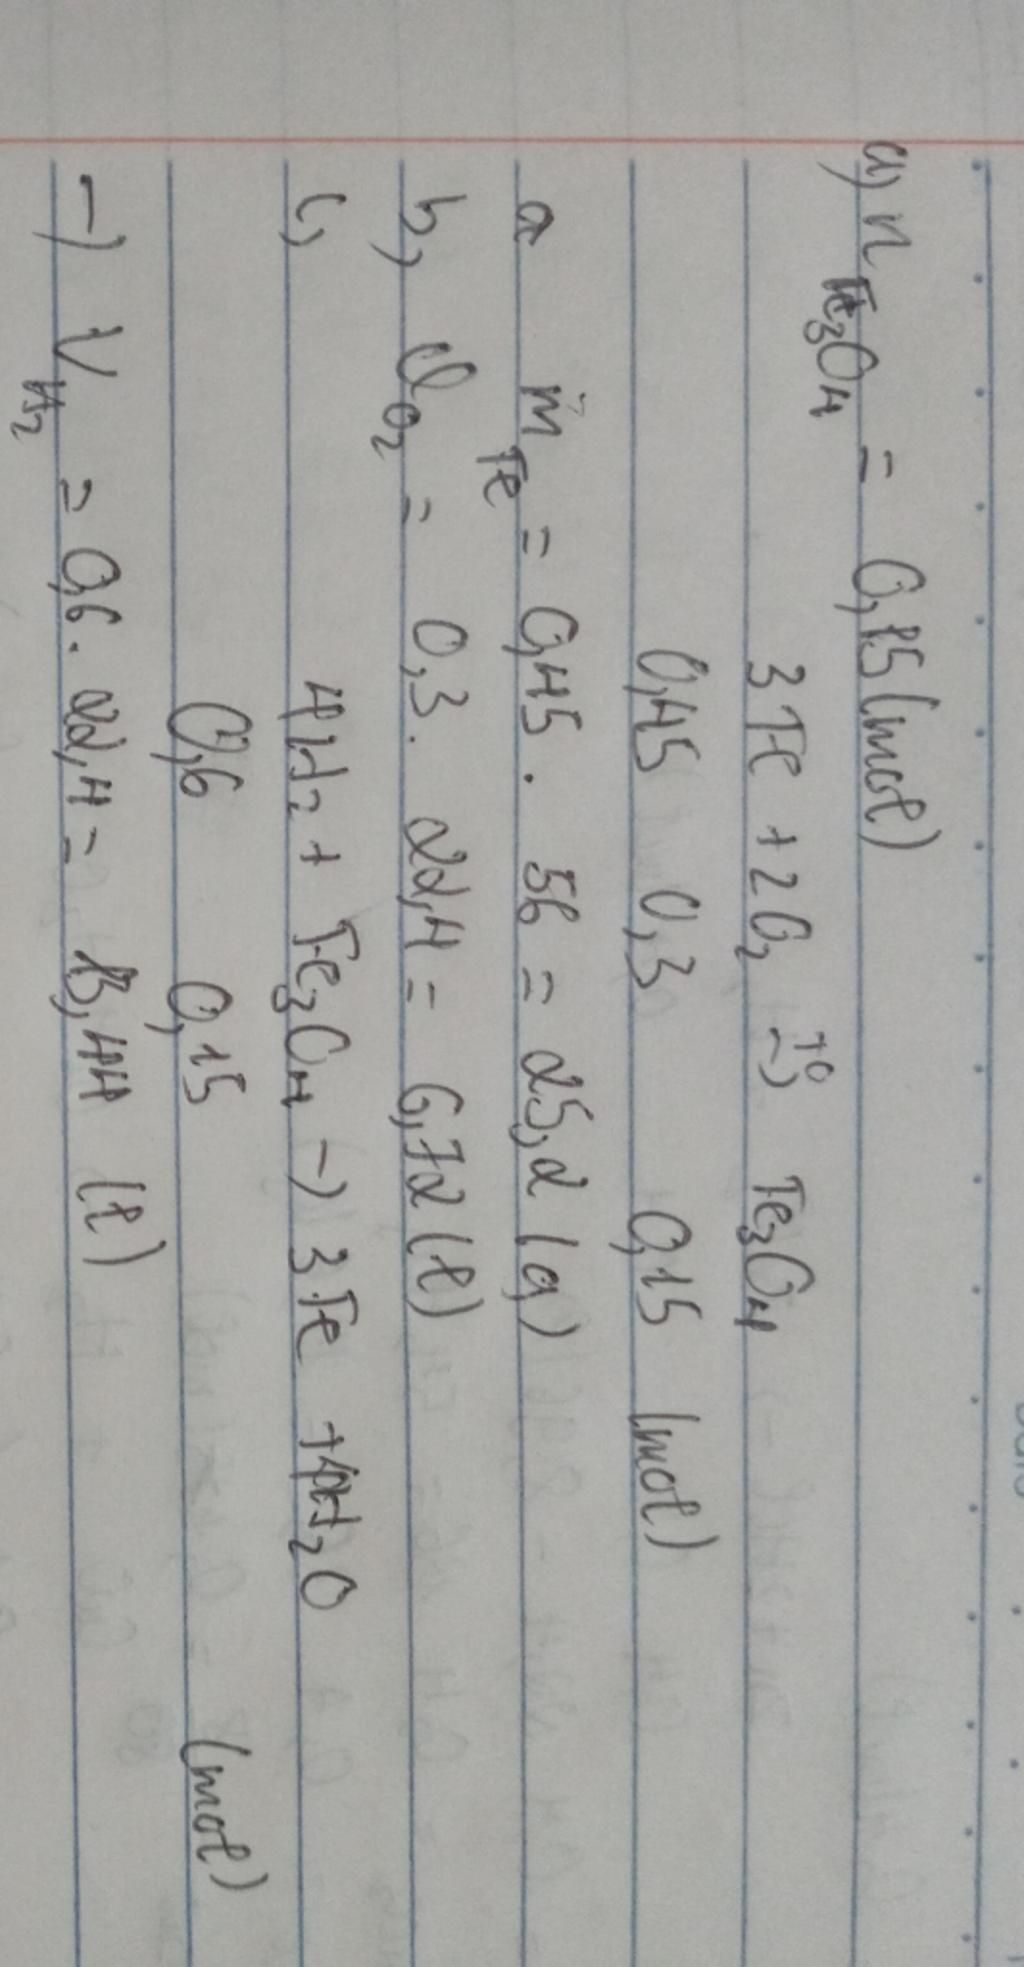 a) n Fe3O4 = 0,15 (mol)
3 Fe + 2O2 -t°-> Fe3O4
0,45 0,3 0,15 (mol)
a m Fe = 0,45 . 56 = 25,2 (g)
b, VO2 = 0,3 . 22,4 = 6,72 (l)
c, 4H2 + Fe3O4 -> 3Fe + 4H2O
0,6 0,15 (mol)
-> VH2 = 0,6 . 22,4 = 13,44 (l)